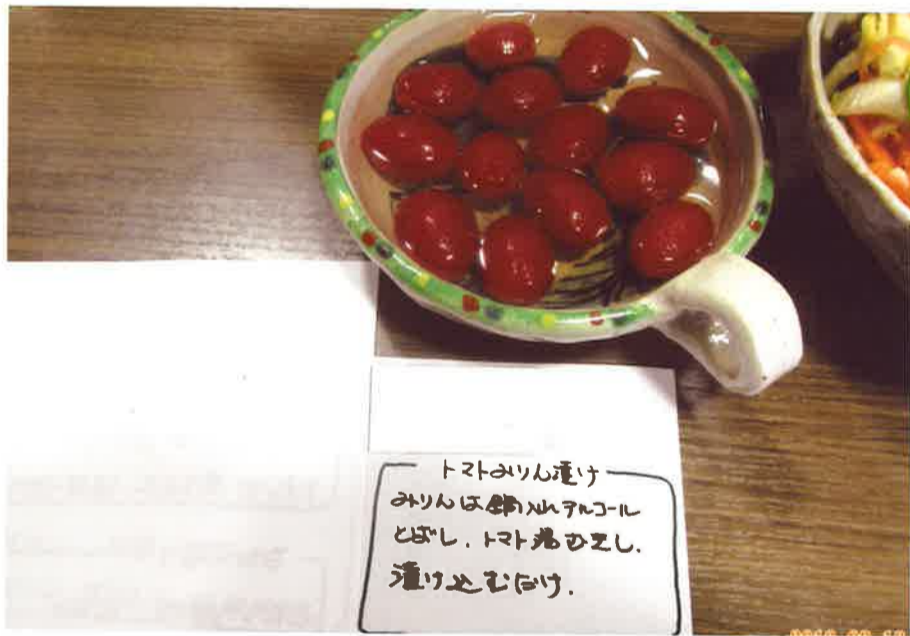 トマトみりん漬け
みりんは鍋入れアルコール
とばし、トマト湯むきし、
漬け込むだけ.